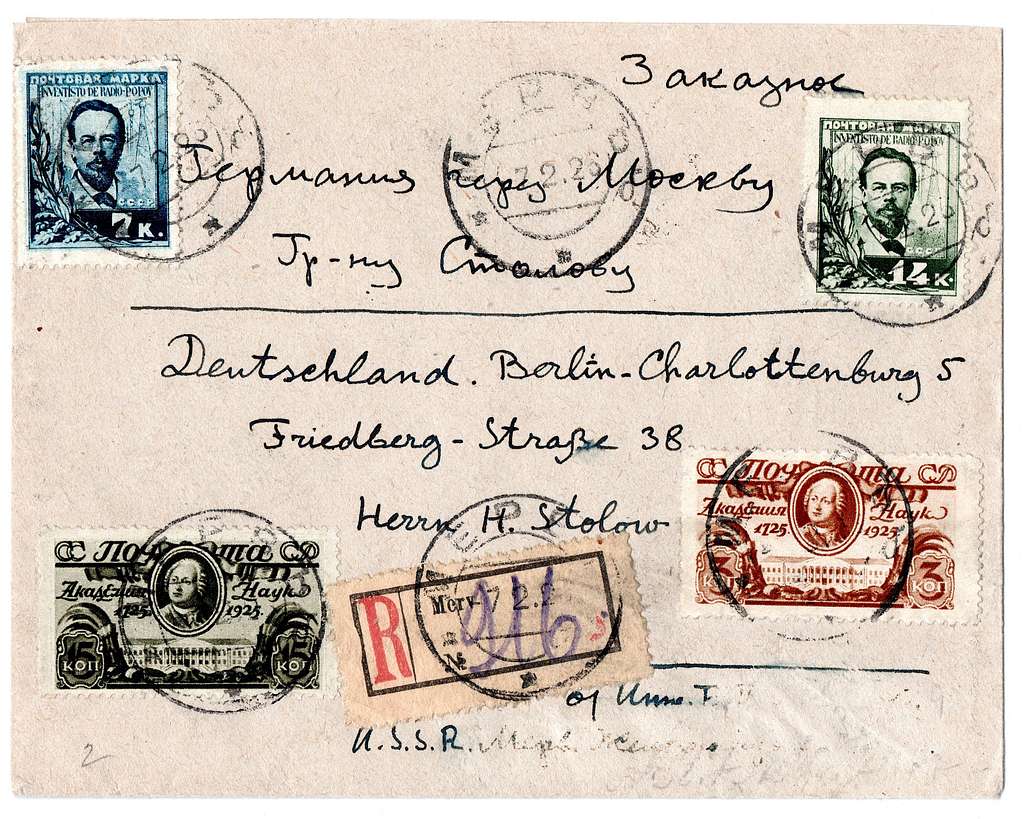 Заказное
ПОЧТОВАЯ МАРКА
INVENTISTO DE RADIO-POPOV
СССР
7 К.
ПОЧТОВАЯ МАРКА
INVENTISTO DE RADIO-POPOV
СССР
14 К.
МЕРВ
7.2.26
Германия через Москву
Гр-ну Столову
Deutschland. Berlin-Charlottenburg 5
Friedberg-Straße 38
Herrn H. Stolow
СС Почта СР
Академия Наук
1725 1925
3 КОП 3 КОП
СС Почта СР
Академия Наук
1725 1925.
15 КОП 15 КОП
МЕРВ
R Merv 7 2.2
№ 916
от
U.S.S.R. Мерв
2